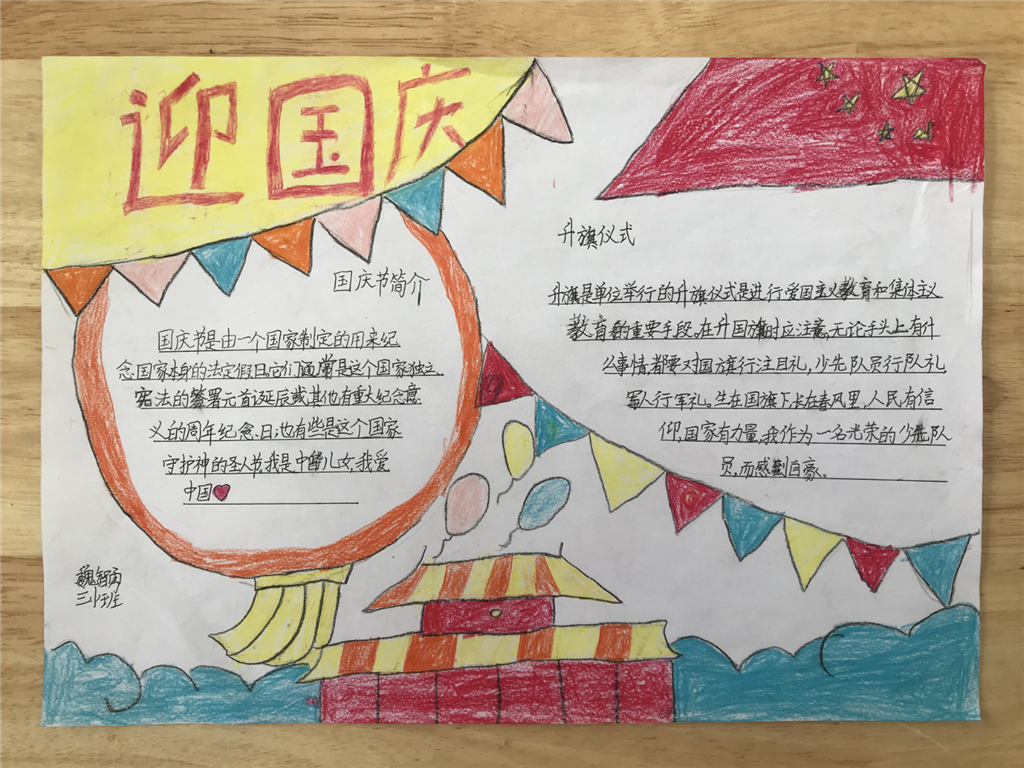 迎国庆
国庆节简介
国庆节是由一个国家制定的用来纪
念国家本身的法定假日,它们通常是这个国家独立、
宪法的签署元首诞辰或其他有重大纪念意
义的周年纪念日;也有些是这个国家
守护神的圣人节,我是中国儿女,我爱
中国
升旗仪式
升旗是单位举行的升旗仪式是进行爱国主义教育和集体主义
教育的重要手段。在升国旗时应注意,无论手头上有什
么事情,都要对国旗行注目礼,少先队员行队礼
军人行军礼。生在国旗下,长在春风里,人民有信
仰,国家有力量,我作为一名光荣的少先队
员,而感到自豪。
魏
三 班